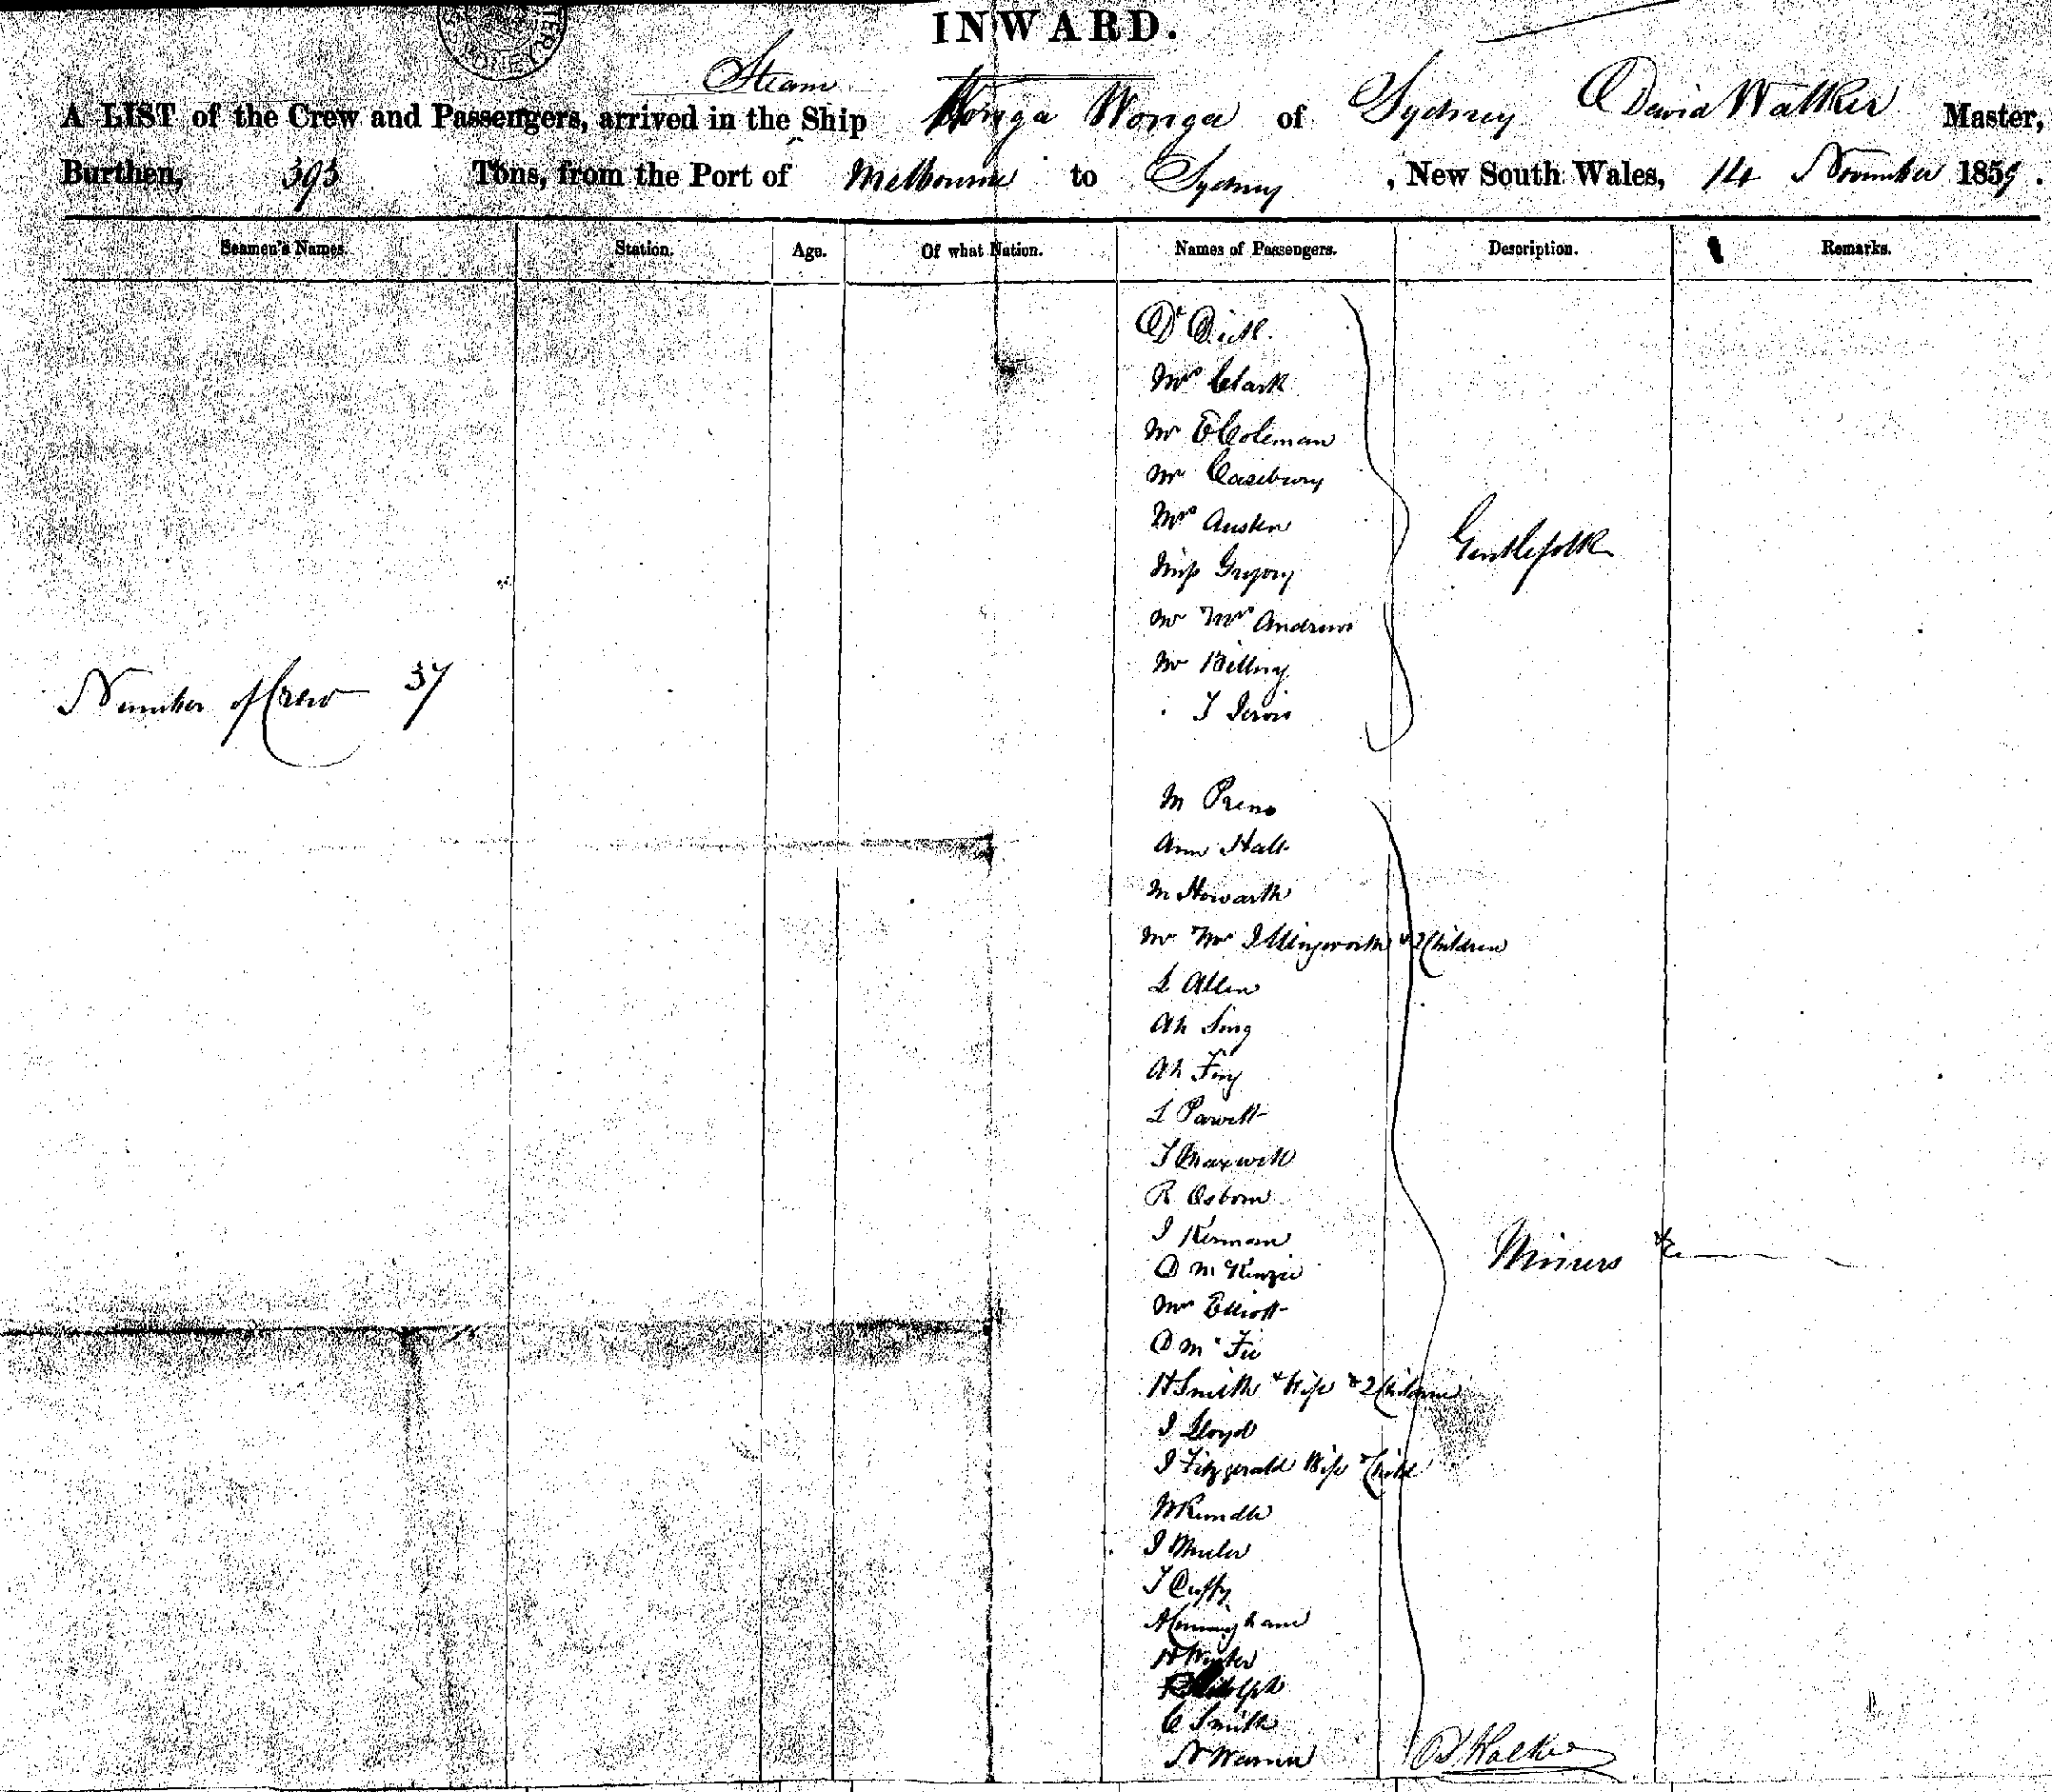 INWARD.
Steam
A LIST of the Crew and Passengers, arrived in the Ship Wonga Wonga of Sydney David Walker Master,
Burthen, 393 Tons, from the Port of Melbourne to Sydney, New South Wales, 14 November 1859.
Seamen's Names. Station. Age. Of what Nation. Names of Passengers. Description. Remarks.
Dr
Mrs Clark
Mr E Coleman
Mr Casebury
Mrs Austen
Gentlefolk
Miss Gregory
Mr Mrs Andrews
Mr Billing
Number of Crew 37
T Jervis
M
Ann Hall
M Howarth
Mr Mrs Illingworth & 2 Children
L Allen
Ah Sing
Ah Fing
L
T Maxwell
R Osborn
J Kernan
Miners &c
D McKenzie
Mrs Elliott
D McFie
H Smith & Wife & 2 Children
J Lloyd
J Fitzgerald Wife & Child
W Rundle
J
T Duffy
A Cunningham
H Winter
C Smith
N Warren
D Walker